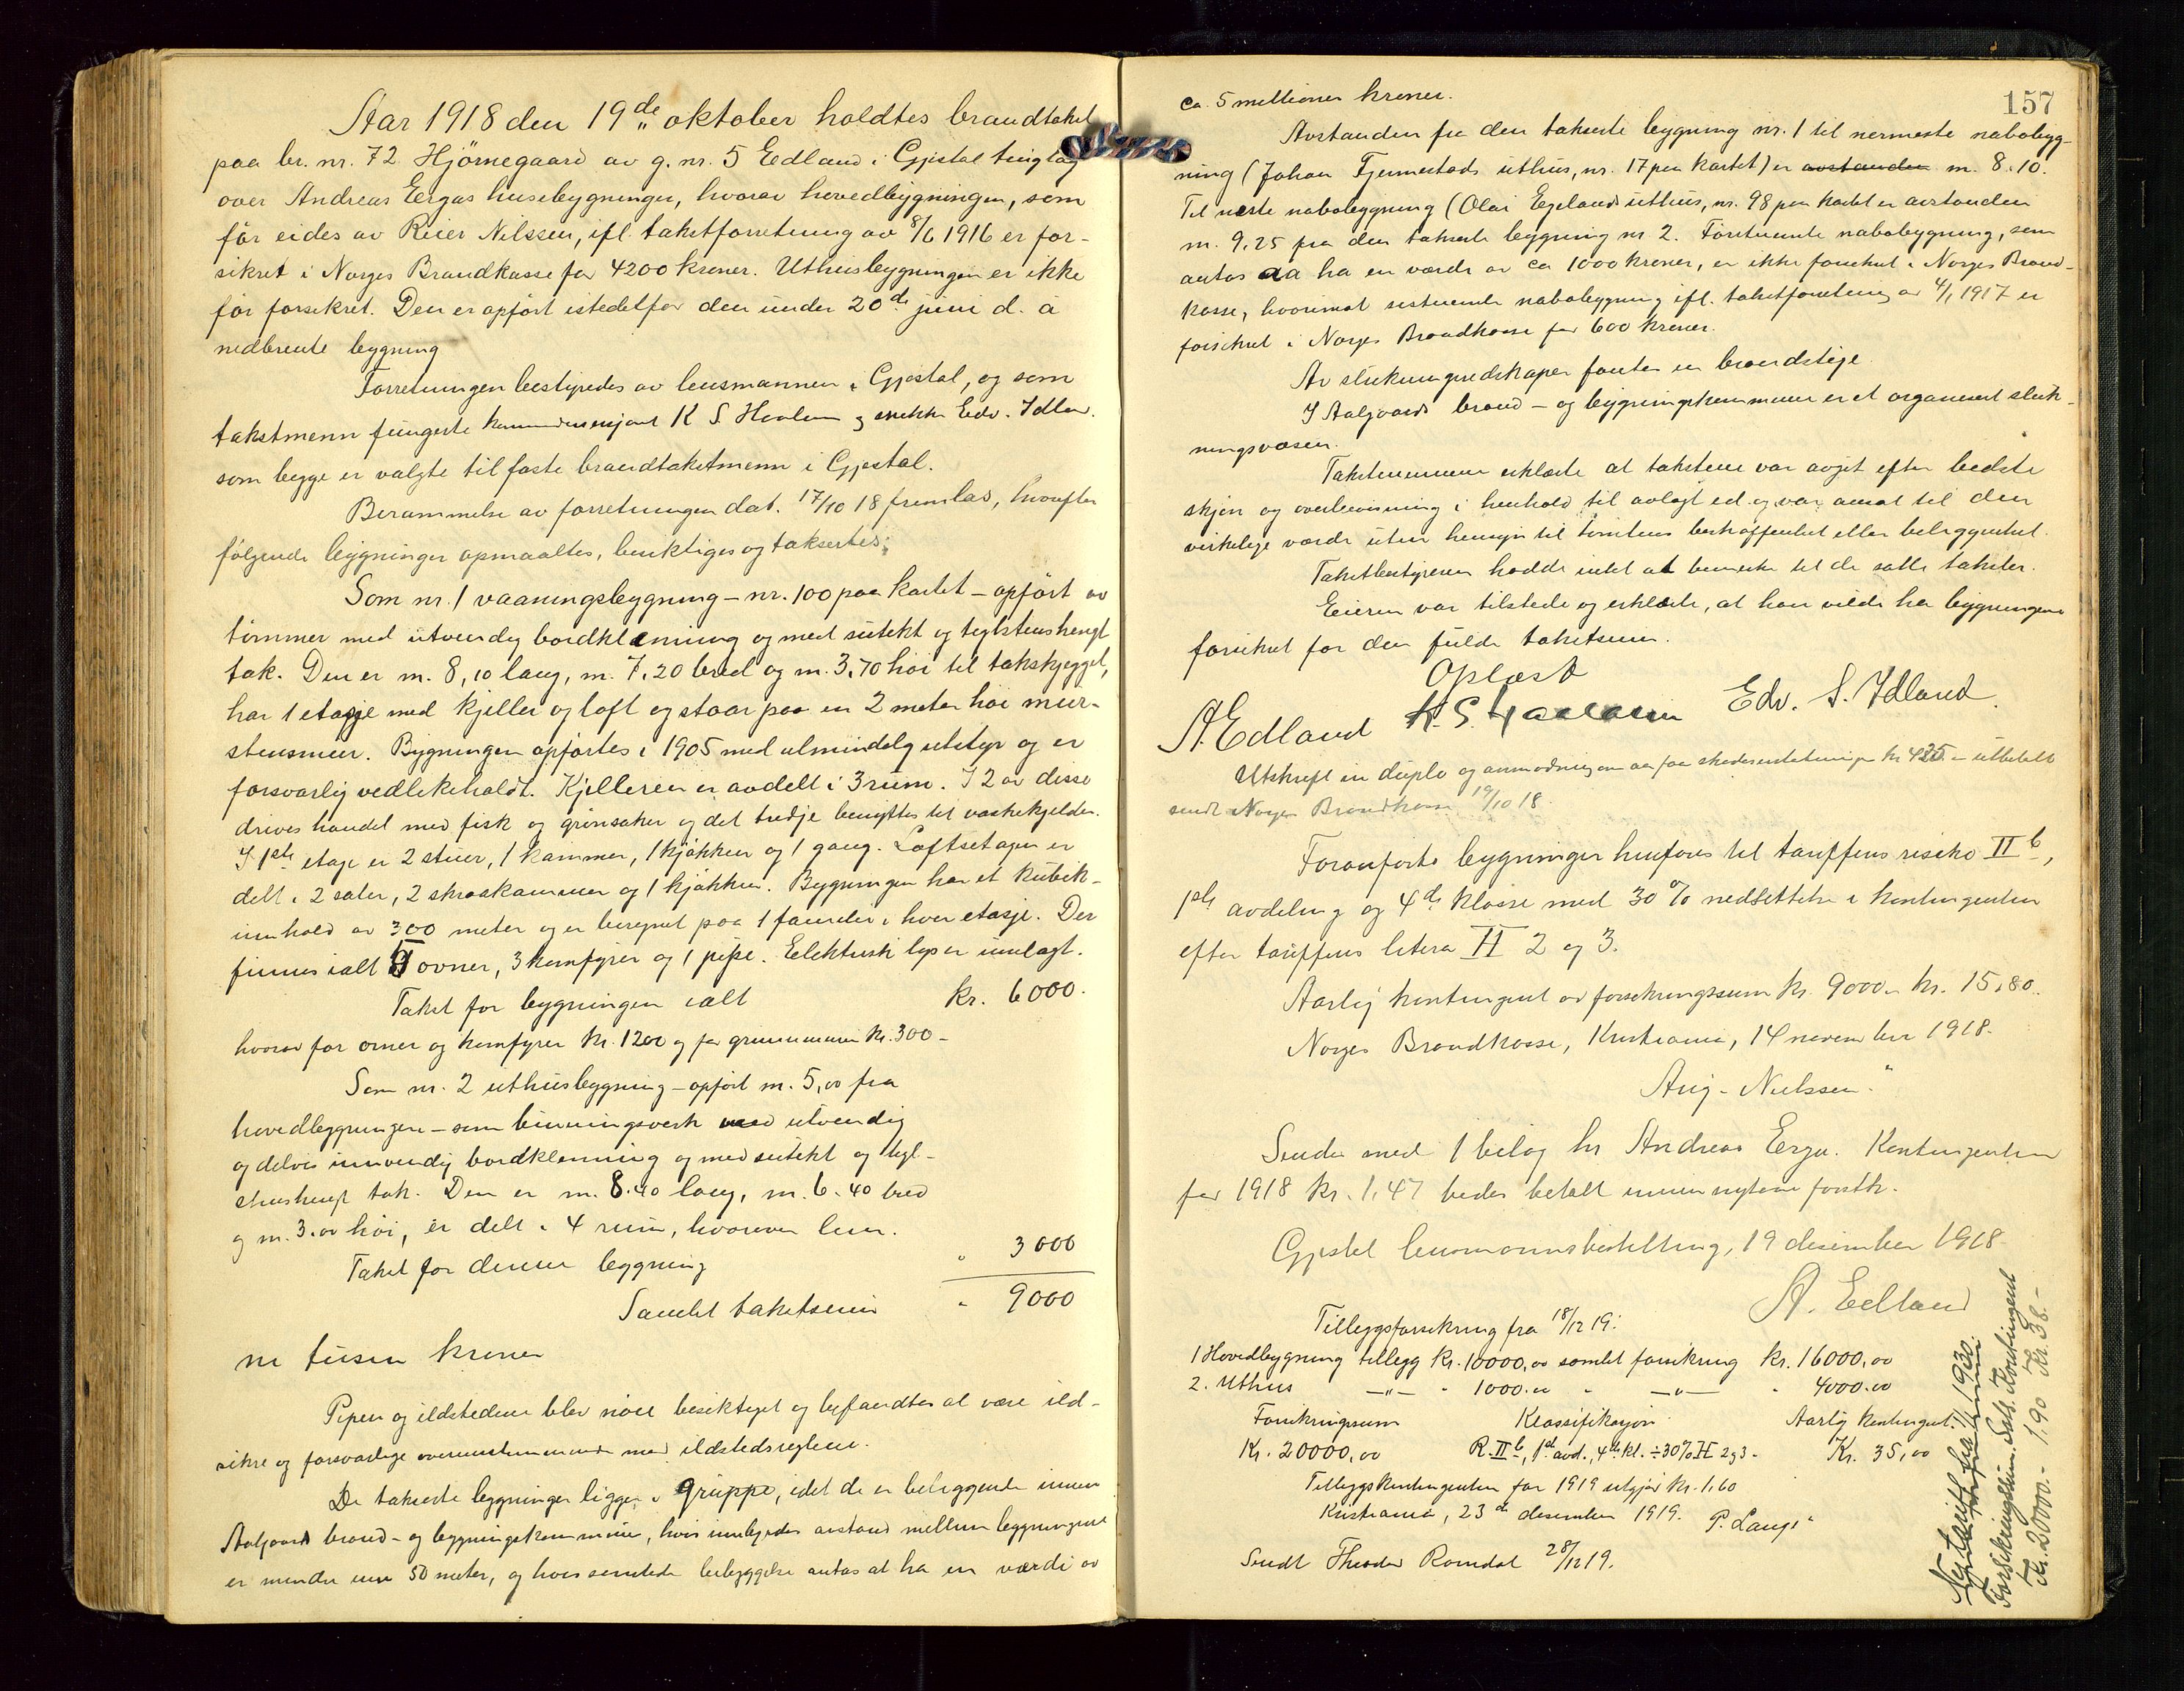 Aar 1918 den 19de oktober holdtes brandtakst
paa br. nr. 72 Hjörnegaard av g. nr. 5 Edland i Gjestal tinglag
over Andreas Eergas husebygninger, hvorav hovedbygningen, som
før eides av Reier Nilssen, ifl. takstforretning av 8/6 1916 er for-
sikret i Norges Brandkasse for 4200 kroner. Uthusbygningen er ikke
før forsikret. Den er opført istedetfor den under 20de juni d. å
nedbrente bygning
Forretningen bestyredes av lensmannen i Gjestal, og som
takstmenn fungerte K S. Haaland og snekker Edv. Idland.
som begge er valgte til faste brandtakstmenn i Gjestal.
Berammelse av forretningen dat. 17/10 18 fremlas, hvorefter
følgende bygninger opmaaltes, besiktiges og taksertes:
Som nr. 1 vaaningsbygning – nr. 100 paa kartet – opført av
tømmer med utvendig bordklæning og med sutekt og teglstenshengt
tak. Den er m. 8,10 lang, m. 7,20 bred og m. 3,70 høi til takskjegget,
har 1 etasje med kjeller og loft og staar paa en 2 meter høi mur-
stensmur. Bygningen opførtes i 1905 med almindelig utstyr og er
forsvarlig vedlikeholdt. Kjelleren er avdelt i 3 rum. I 2 av disse
drives handel med fisk og grønsaker og det tredje benyttes til vaskekjelder.
I 1ste etage er 2 stuer, 1 kammer, 1 kjøkken og 1 gang. Loftsetagen er
delt i 2 saler, 2 skraakammer og 1 kjøkken. Bygningen har et kubik-
innhold av 300 meter og er beregnet paa 1 familie i hver etasje. Der
finnes ialt ovner, 3 komfyrer og 1 pipe. Elektrisk lys er innlagt.
Takst for bygningen ialt kr. 6000.
hvorav for ovner og komfyrer kr. 1200 og for grunnmuren kr. 300 –
Som nr. 2 uthusbygning – opført m. 5,00 fra
hovedbygningen – som binningsverk med utvendig
og delvis innvendig bordklæning og med sutekt og tegl-
stenshengt tak. Den er m. 8.40 lang, m. 6.40 bred
og m. 3.00 høi, er delt i 4 rum, hvorover lem.
Takst for denne bygning " 3000
Samlet takstsum " 9000
ni tusen kroner
Pipen og ildstedene blev nøie besiktiget og befandtes at være ild-
sikre og forsvarlige overensstemmende med ildstedsreglene.
De takserte bygninger ligger i gruppe, idet de er beliggende innen
Aalgaard brand- og bygningskommune, hvis innbyrdes avstand mellem bygningene
er mindre enn 50 meter, og hvis samlede bebyggelse antas at ha en værdi av
157
ca. 5 millioner kroner.
Avstanden fra den takserte bygning nr. 1 til nermeste nabobyg-
ning (Johan Fjermestads uthus, nr. 17 paa kartet) er avstanden m. 8.10.
Til neste nabobygning (Olai Egelands uthus, nr. 98 paa kartet er avstanden
m. 9,25 fra den takserte bygning nr 2. Førstnevnte nabobygning, som
antas aa ha en værdi av ca 1000 kroner, er ikke forsikret i Norges Brand-
kasse, hvorimot sistnevnte nabobygning ifl. takstforretning av 4/1 1917 er
forsikret i Norges Brandkasse for 600 kroner.
Av slukningsredskaper fantes en brandstige.
I Aalgaards brand – og bygningskommune er et organisert sluk-
ningsvæsen.
Takstmennene erklærte at takstene var avgit efter bedste
skjøn og overbevisning i henhold til avlagt ed og var ansat til den
virkelige værdi uten hensyn til tomtens beskaffenhet eller beliggenhet.
Takstbestyreren hadde intet at bemerke til de satte takster.
Eieren var tilstede og erklærte, at han vilde ha bygningene
forsikret for den fulde takstsum.
Oplæst
A. Edland K. S. Haaland Edv. S. Idland.
Utskrift in duplo og anmodning om aa faa skadeserstatningen kr 425 – utbetalt
sendt Norges Brandkasse 19/10 18.
Foranførte bygninger henføres til tariffens risiko II b,
1ste avdeling og 4de klasse med 30 % nedsettelse i kontingenten
efter tariffens litera H 2 og 3.
Aarlig kontingent av forsikringssum kr. 9000 – kr. 15,80.
Norges Brandkasse, Kristiania, 14 november 1918.
Aug. Nielssen."
Sendes med 1 bilag hr Andreas Erga. Kontingenten
for 1918 kr. 1,47 bedes betalt innen nytaar førstk.
Gjestal lensmannsbestilling, 19 desember 1918
A. Edland
Tilleggsforsikring fra 18/12 19:
1 Hovedbygning tillegg kr. 10000,00 samlet forsikring kr. 16000,00
2. Uthus –"– " 1000.00 " –"– " 4000.00
Forsikringssum Klassifikasjon Aarlig kontingent:
Kr. 20000,00 R. II b, 1ste avd., 4de kl. ÷ 30% H 2 og 3 – Kr. 35,00
Tilleggskontingenten for 1919 utgjør kr. 1,60
Kristiania, 23de desember 1919. P. Lange"
Sendt Theodor Romdal 28/12 19.
Ny tariff fra 1/1 1930.
Forsikringssum. Sats. Kontingent
Kr. 20000.- 1.90 Kr. 38.-